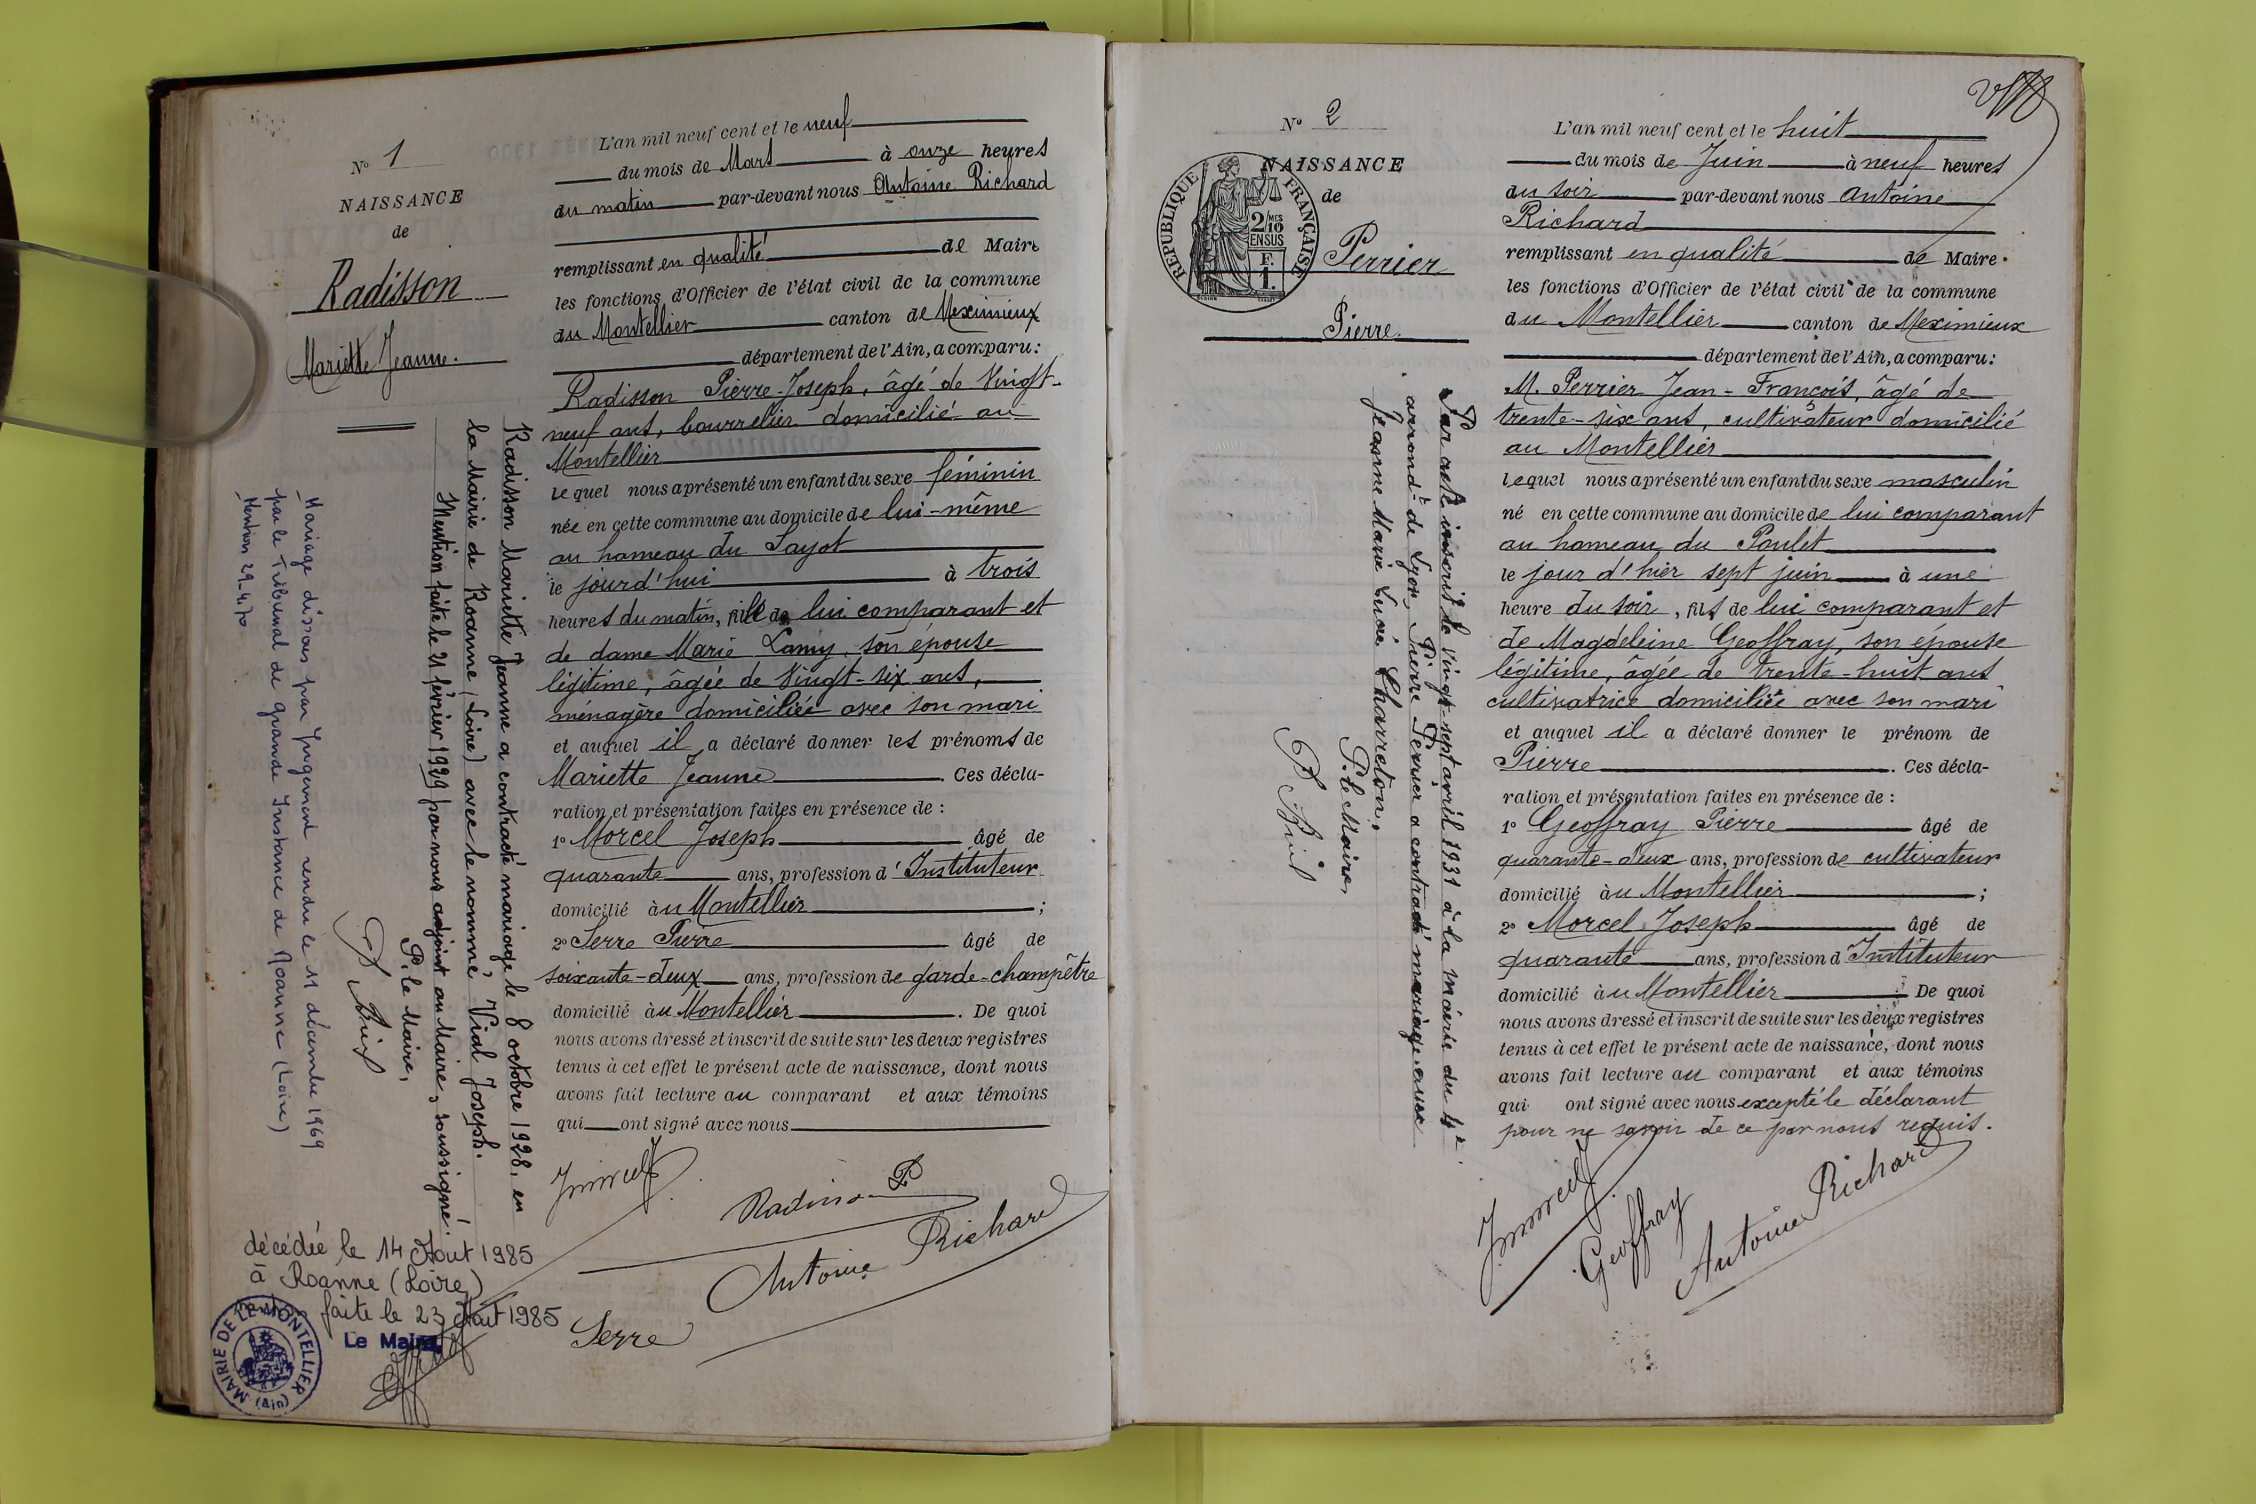 N° 1
NAISSANCE
de
Radisson
Mariette Jeanne.
L'an mil neuf cent et le neuf
du mois de Mars à onze heures
du matin par-devant nous Antoine Richard
remplissant en qualité de Maire
les fonctions d'Officier de l'état civil de la commune
du Montellier canton de Meximieux
département de l'Ain, a comparu:
Radisson Pierre-Joseph, âgé de Vingt-
neuf ans, bourrelier domicilié au
Montellier
lequel nous a présenté un enfant du sexe féminin
née en cette commune au domicile de lui-même
au hameau du
le jourd'hui à trois
heures du matin, fille de lui comparant et
de dame Marie Lamy, son épouse
légitime, âgée de Vingt-six ans,
ménagère domiciliée avec son mari
et auquel il a déclaré donner les prénoms de
Mariette Jeanne. Ces décla-
ration et présentation faites en présence de :
1° Morcel Joseph âgé de
quarante ans, profession d'Instituteur
domicilié à u Montellier ;
2° Serre Pierre âgé de
soixante-deux ans, profession de garde-champêtre
domicilié à u Montellier. De quoi
nous avons dressé et inscrit de suite sur les deux registres
tenus à cet effet le présent acte de naissance, dont nous
avons fait lecture au comparant et aux témoins
qui ont signé avec nous
JMorcel
Radisson P
Antoine Richard
Serre
Radisson Mariette Jeanne a contracté mariage le 8 octobre 1928, en
la Mairie de Roanne (Loire) avec le nommé, Vial Joseph.
Mention faite le 21 février 1929 par nous adjoint au Maire, soussigné.
P. le Maire,
Mariage dissous par Jugement rendu le 11 décembre 1969
par le Tribunal de Grande Instance de Roanne (Loire)
Mention 29-4.70
décédée le 14 Août 1985
à Roanne (Loire)
faite le 23 Août 1985
Le Maire,
MAIRIE DE LE MONTELLIER (Ain)
N° 2
NAISSANCE
de
REPUBLIQUE FRANÇAISE
2/10
EN SUS
F.
1.
Perrier
Pierre.
L'an mil neuf cent et le huit
du mois de Juin à neuf heures
du soir par-devant nous Antoine
Richard
remplissant en qualité de Maire.
les fonctions d'Officier de l'état civil de la commune
du Montellier canton de Meximieux
département de l'Ain, a comparu:
M. Perrier Jean-François, âgé de
trente-six ans, cultivateur domicilié
au Montellier
lequel nous a présenté un enfant du sexe masculin
né en cette commune au domicile de lui comparant
au hameau du Poulet
le jour d'hier sept juin à une
heure du soir, fils de lui comparant et
de Magdeleine Geoffray, son épouse
légitime, âgée de trente-huit ans
cultivatrice domiciliée avec son mari
et auquel il a déclaré donner le prénom de
Pierre. Ces décla-
ration et présentation faites en présence de :
1° Geoffray Pierre âgé de
quarante-deux ans, profession de cultivateur
domicilié à u Montellier ;
2° Morcel Joseph âgé de
quarante ans, profession d'Instituteur
domicilié à u Montellier De quoi
nous avons dressé et inscrit de suite sur les deux registres
tenus à cet effet le présent acte de naissance, dont nous
avons fait lecture au comparant et aux témoins
qui ont signé avec nous excepté le déclarant
pour ne savoir de ce par nous requis.
JMorcel
Geoffray
Antoine Richard
Par acte inscrit le vingt-sept avril 1931 à la mairie du 4e
arrond.t de Lyon, Pierre Perrier a contracté mariage avec
Jeanne Marie Charreton.
P. le Maire,